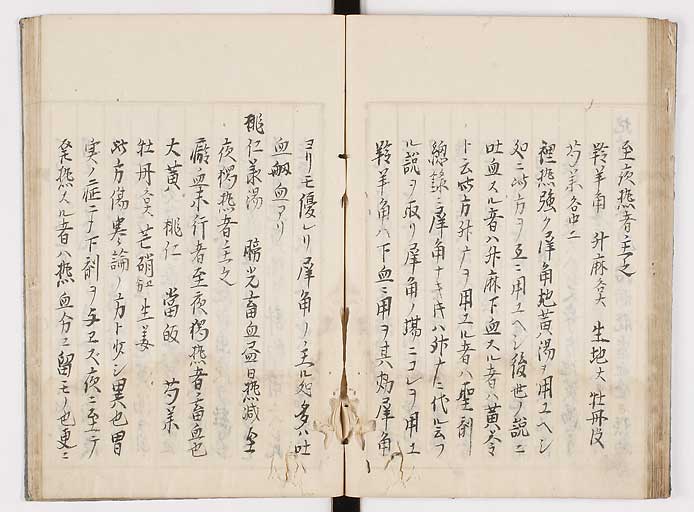 至夜熱者主之
羚羊角 升麻各大 生地大 牡丹皮
芍薬各中ニ
裡熱強ク犀角地黄湯ヲ用ユヘシ
処ニ此方ヲ互ニ用ユヘシ後世ノ説ニ
吐血スル者ハ升麻下血スル者ハ黄芩
ト云此方升广ヲ用ユル者ハ聖剤
總録ニ犀角ナキ片ハ升广ニ代ル云フ
ル説ヲ取リ犀角ノ場ニコレヲ用ユ
羚羊角ハ下血ニ用ヲ其効犀角
ヨリモ優レリ犀角ノ主ル処多ハ吐
血衂血ナリ
桃仁承湯 膀光畜血 日熱减至
夜獨熱者主之
瘀血未行者至夜獨熱者畜血也
大黄 桃仁 當皈 芍薬
牡丹各大 芒硝 生姜
此方傷寒論ノ方ト少シ異也胃
実ノ症ニテ下剤ヲ与エズ夜ニ至テ
発熱スル者ハ熱血分ニ留モノ也更ニ